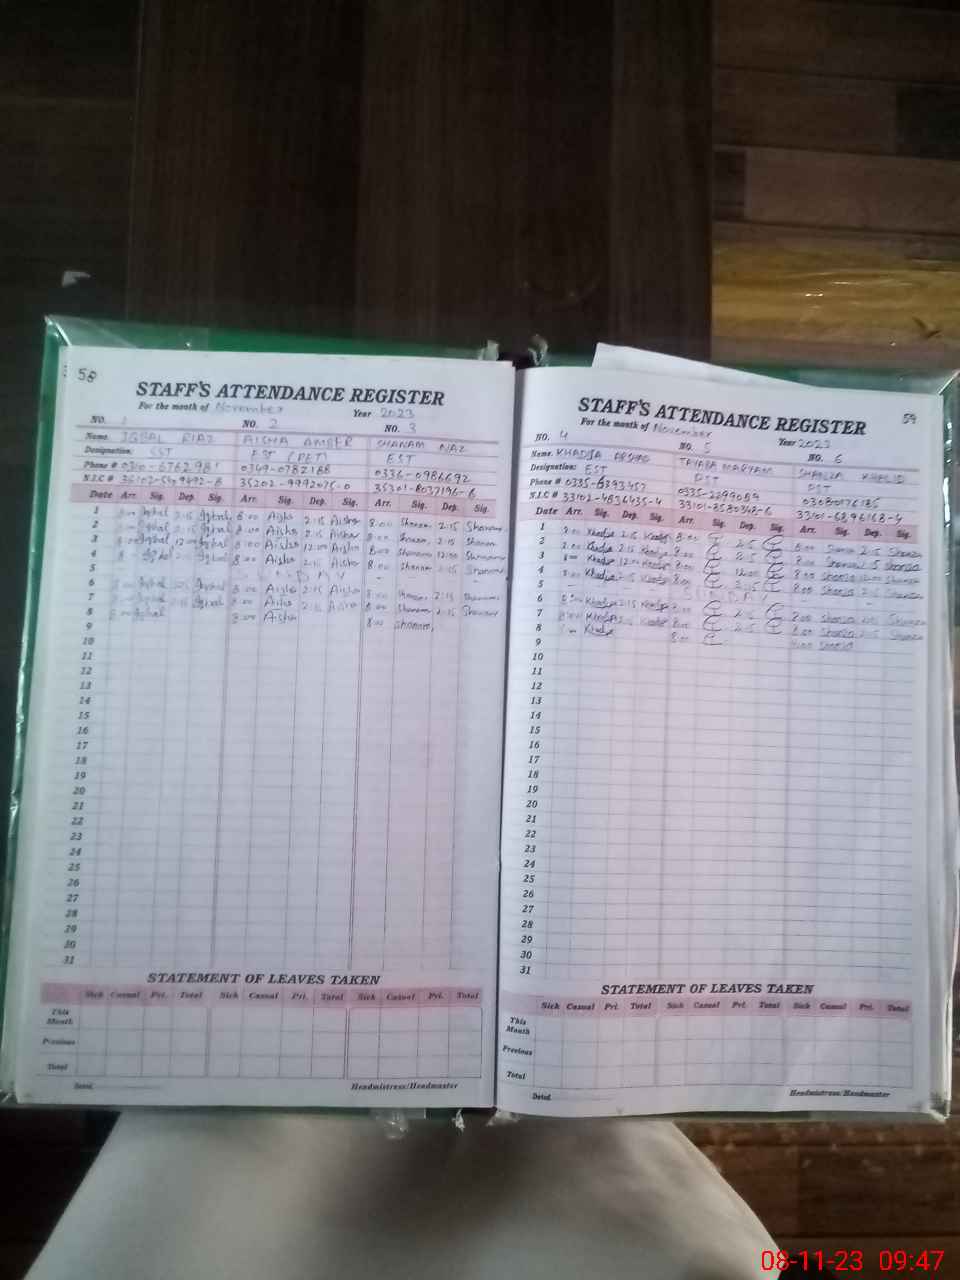 58
STAFF'S ATTENDANCE REGISTER
For the month of November Year 2023
NO. 1 NO. 2 NO. 3
Name. IQBAL RIAZ AISHA AMBER SHANAM NAZ
Designation: SST EST (PET) EST
Phone # 0340-6762981 0349-0782188 0336-0986692
N.I.C # 35202-9992075-0 35301-8037196-6
Date Arr. Sig. Dep. Sig. Arr. Sig. Dep. Sig. Arr. Sig. Dep. Sig.
1 8:00 Iqbal 2:15 Iqbal 8:00 Aisha 2:15 Aisha 8:00 Shanam 2:15 Shanam
2 8:00 Iqbal 2:15 Iqbal 8:00 Aisha 2:15 Aisha 8:00 Shanam 2:15 Shanam
3 8:00 Iqbal 12:00 Iqbal 8:00 Aisha 12:00 Aisha 8:00 Shanam 12:00 Shanam
4 8:00 Iqbal 2:15 Iqbal 8:00 Aisha 2:15 Aisha 8:00 Shanam 2:15 Shanam
5 SUNDAY
6 8:00 Iqbal 2:15 Iqbal 8:00 Aisha 2:15 Aisha 8:00 Shanam 2:15 Shanam
7 8:00 Iqbal 2:15 Iqbal 8:00 Aisha 2:15 Aisha 8:00 Shanam 2:15 Shanam
8 8:00 Iqbal 8:00 Aisha 8:00 Shanam
9
10
11
12
13
14
15
16
17
18
19
20
21
22
23
24
25
26
27
28
29
30
31
STATEMENT OF LEAVES TAKEN
Sick Casual Pri. Total Sick Casual Pri. Total Sick Casual Pri. Total
This Month
Previous
Total
Dated Headmistress/Headmaster
59
STAFF'S ATTENDANCE REGISTER
For the month of November Year 2023
NO. 4 NO. 5 NO. 6
Name. KHADIJA ARSHAD TAYABA MARYAM SHANZA KHALID
Designation: EST DST DST
Phone # 0335-6393457 0335-2299089 03080176185
N.I.C # 33102-4836435-4 33101-8580348-6 33101-6896168-4
Date Arr. Sig. Dep. Sig. Arr. Sig. Dep. Sig. Arr. Sig. Dep. Sig.
1 8:00 Khadija 2:15 Khadija 8:00 2:15 8:00 Shanza 2:15 Shanza
2 8:00 Khadija 2:15 Khadija 8:00 2:15 8:00 Shanza 2:15 Shanza
3 8:00 Khadija 12:00 Khadija 8:00 12:00 8:00 Shanza 12:00 Shanza
4 8:00 Khadija 2:15 Khadija 8:00 2:15 8:00 Shanza 2:15 Shanza
5 SUNDAY
6 8:00 Khadija 2:15 Khadija 8:00 2:15 8:00 Shanza 2:15 Shanza
7 8:00 Khadija 2:15 Khadija 8:00 2:15 8:00 Shanza 2:15 Shanza
8 8:00 Khadija 8:00 8:00 Shanza
9
10
11
12
13
14
15
16
17
18
19
20
21
22
23
24
25
26
27
28
29
30
31
STATEMENT OF LEAVES TAKEN
Sick Casual Pri. Total Sick Casual Pri. Total Sick Casual Pri. Total
This Month
Previous
Total
Dated Headmistress/Headmaster
08-11-23 09:47